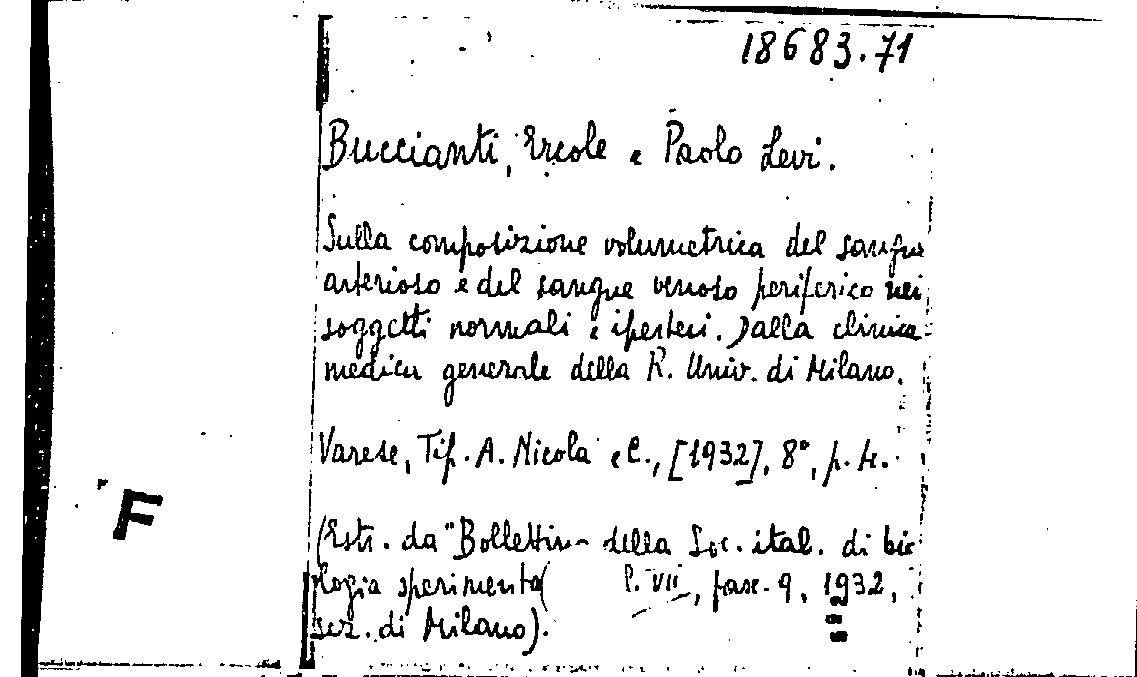 18683.71
Buccianti, Ercole e Paolo Levi.
Sulla composizione volumetrica del sangue
arterioso e del sangue venoso periferico nei
soggetti normali e ipertesi. Dalla clinica
medica generale della R. Univ. di Milano.
Varese, Tip. A. Nicola e C., [1932], 8°, p. 4.
(Estr. da "Bollettino della Soc. ital. di bio
logia sperimenta( vii, fasc. 9, 1932,
sez. di Milano).
F